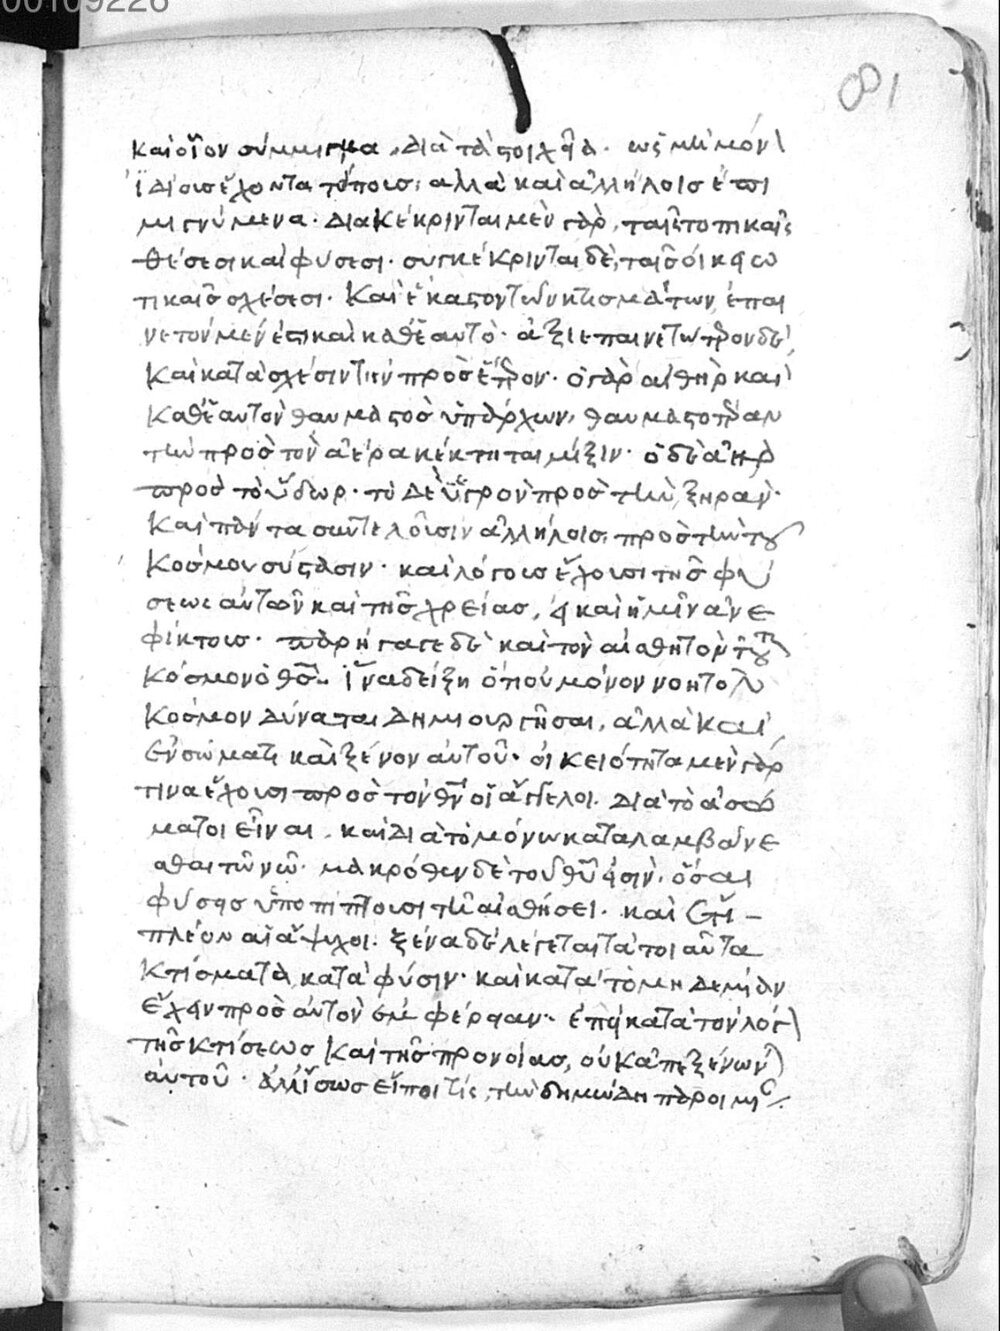 00109226
81
καὶ οἷον σύμμιγμα, διὰ τὰ στοιχεῖα. ὡς μὴ μόν
ἰδίοις ἔχοντα τόποις, ἀλλὰ καὶ ἀλλήλοις ἐπι
μιγνύμενα. διακέκρινται μὲν γὰρ, ταῖς τοπικαῖς
θέσεσι καὶ φύσεσι. συγκέκρινται δὲ, ταῖς οἰκειω
τικαῖς σχέσεσι. καὶ ἕκαστον τῶν κτισμάτων, ἐπαι
νετὸν μέν ἐστι καὶ καθ' ἑαυτὸ. ἀξιεπαινετώτερον δὲ,
καὶ κατὰ σχέσιν τὴν πρὸς ἕτερον. ὁ γὰρ αἰθὴρ καὶ
καθ' ἑαυτὸν θαυμαστὸς ὑπάρχων, θαυμαστοτέραν
τὴν πρὸς τὸν ἀέρα κέκτηται μίξιν. ὁ δὲ ἀὴρ
πρὸς τὸ ὕδωρ. τὸ δὲ ὑγρὸν πρὸς τὴν ξηράν.
καὶ πάντα συντελοῦσιν ἀλλήλοις, πρὸς τὴν τοῦ
κόσμου σύστασιν. καὶ λόγους ἔχουσι τῆς φυ
σεως αὐτῶν καὶ τῆς χρείας, εἰ καὶ ἡμῖν ἀνε
φίκτους. παρήγαγε δὲ καὶ τὸν αἰσθητὸν τοῦτον
κόσμον ὁ θεὸς. ἵνα δείξῃ ὅτι οὐ μόνον νοητὸν
κόσμον δύναται δημιουργῆσαι, ἀλλὰ καὶ
ἐν σώματι καὶ ξένον αὐτοῦ. οἰκειότητα μὲν γάρ
τινα ἔχουσι πρὸς τὸν θν οἱ ἄγγελοι. διὰ τὸ ἀσώ
ματοι εἶναι. καὶ διὰ τὸ μόνω καταλαμβάνε
σθαι τῶ νῶ. μακρόθεν δὲ τοῦ θυ εἰσὶν, ὅσαι
φύσεις ὑποπίπτουσι τῇ αἰσθήσει. καὶ ἔτι
πλέον αἱ ἄψυχοι. ξένα δὲ λέγεται τὰ τοιαῦτα
κτίσματα, κατὰ φύσιν. καὶ κατὰ τὸ μηδεμίαν
ἔχειν πρὸς αὐτὸν ἐμφέρειαν. ἐπεὶ κατὰ τὸν λόγ
τῆς κτίσεως καὶ τῆς προνοίας, οὐκ ἄπο ξένων
αὐτοῦ. ἀλλ' ἴσως εἴποι τίς, τὴν δημώδη παροιμί